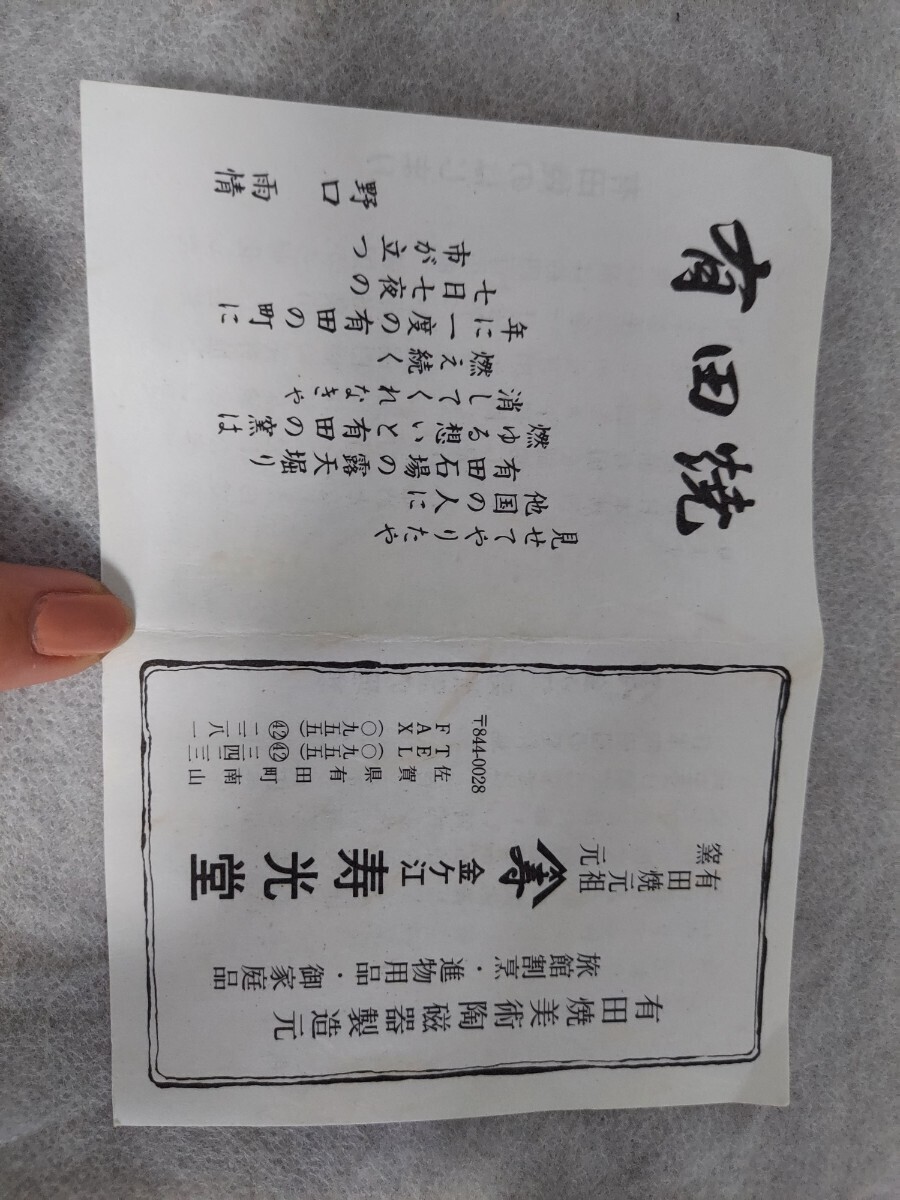 有田焼
見せてやりたや
他国の人に
有田石場の露天堀り
燃ゆる想いと有田の窯は
消してくれなきや
燃え続く
年に一度の有田の町に
七日七夜の
市が立つ
野口雨情
有田焼美術陶磁器製造元
旅館割烹・進物用品・御家庭品
有田焼元祖
窯元
金ケ江
寿光堂
〒844-0028
佐賀県有田町南山
TEL(〇九五五)㊷
FAX(〇九五五)㊷